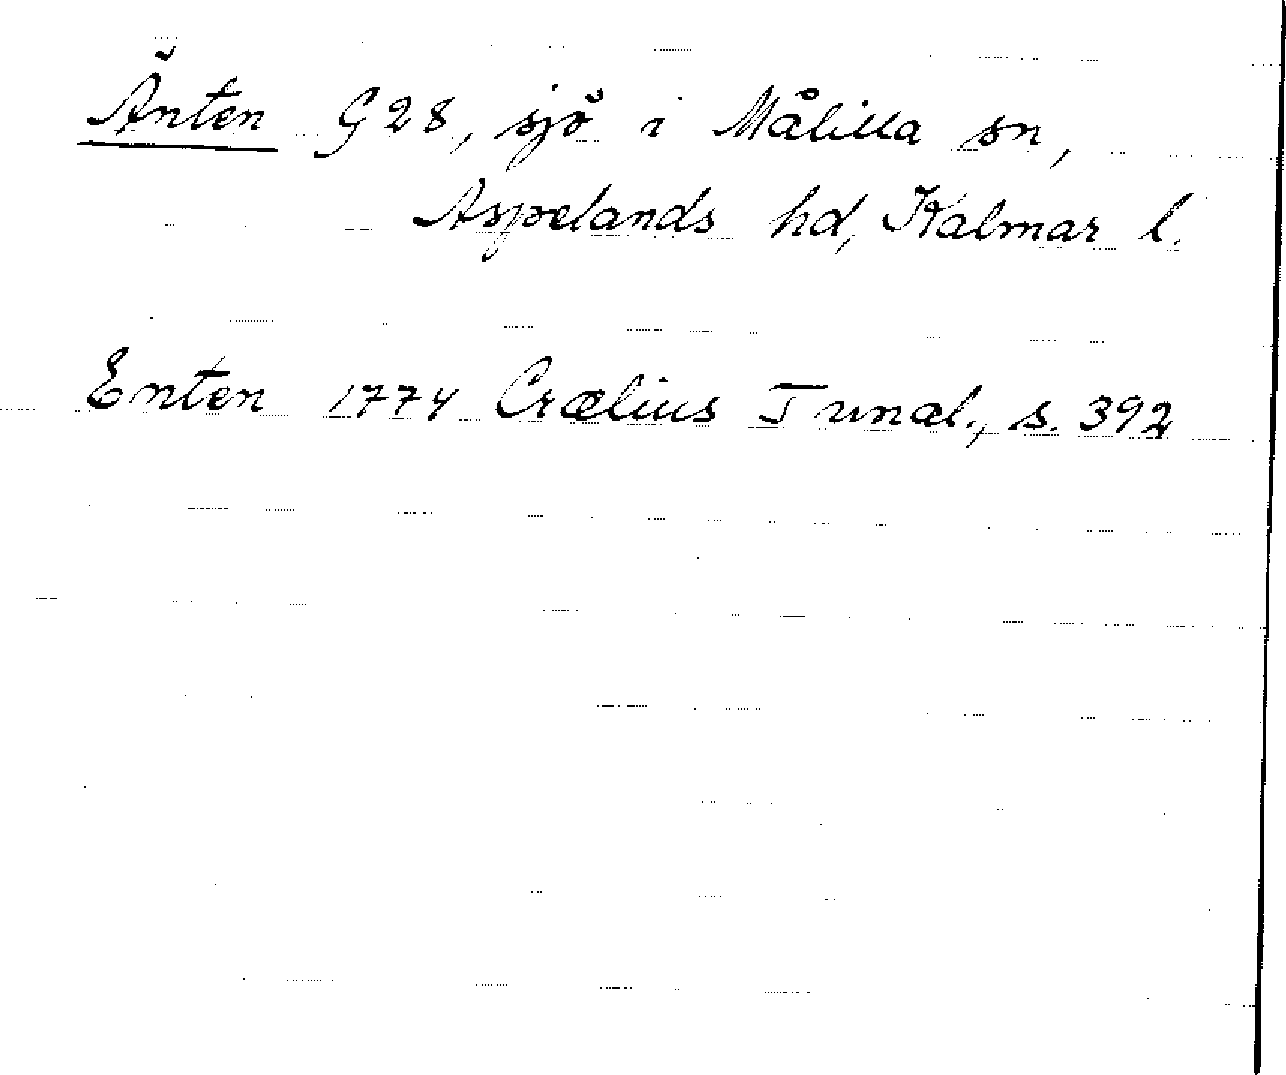 Änten G 28, sjö i Målilla sn,
Aspelands hd, Kalmar l.
Enten 1774 Crælius Tunal., s. 392